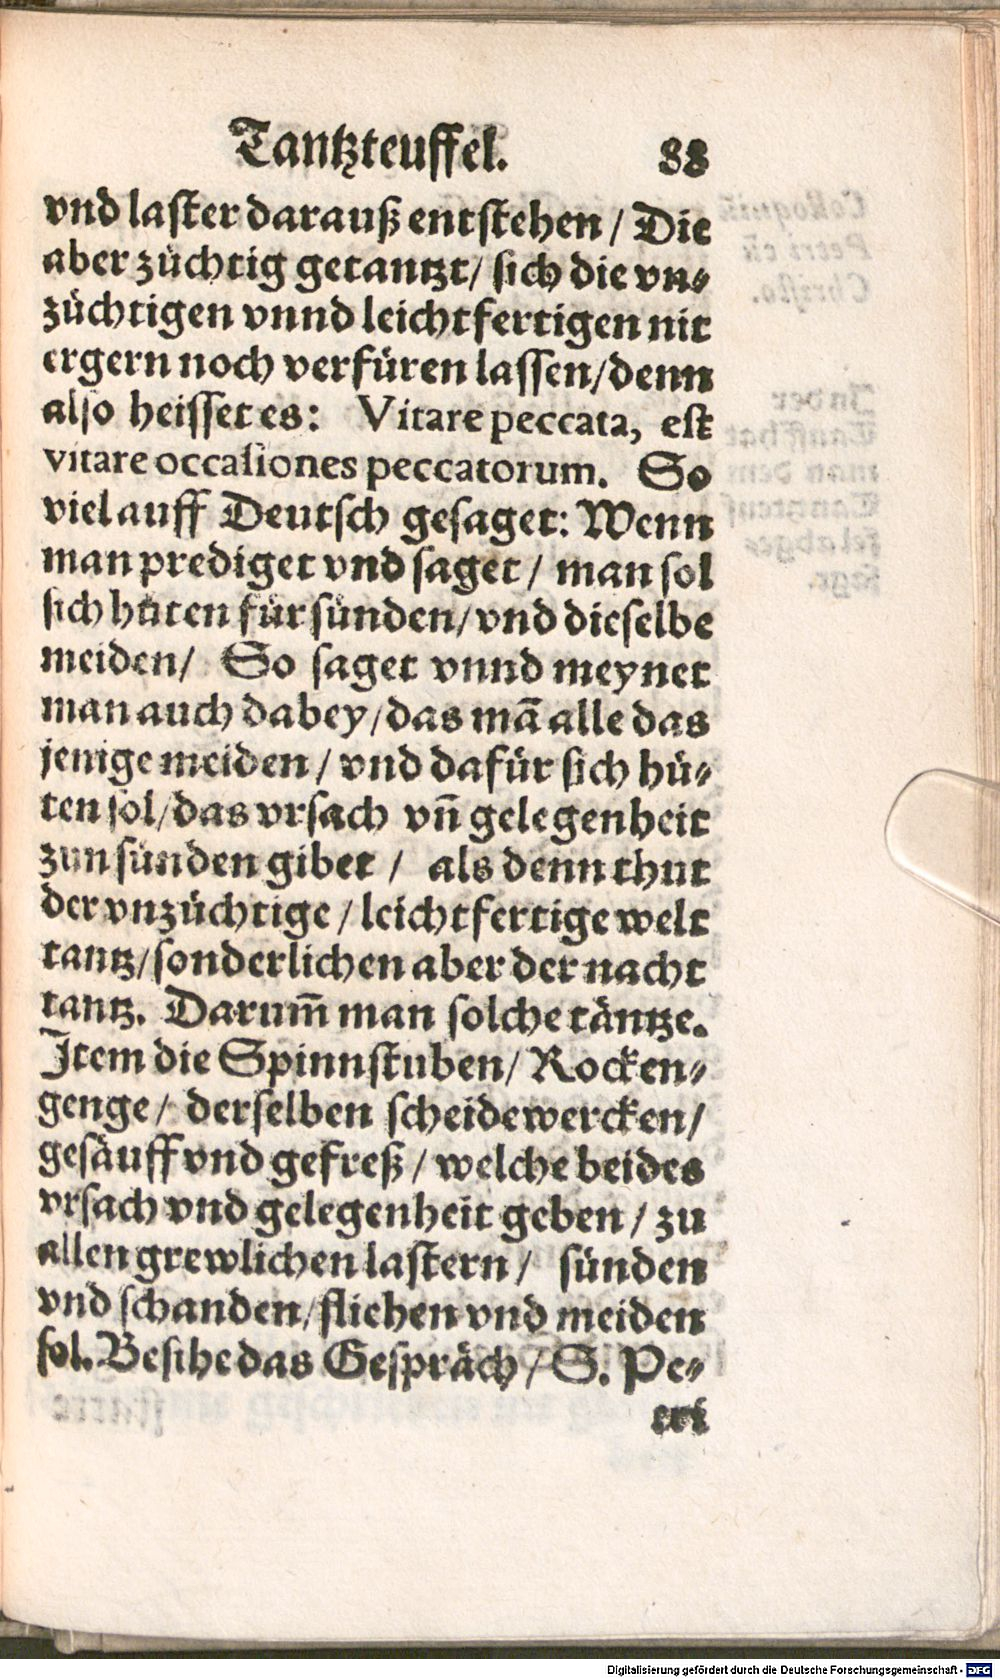 Tantzteuffel. 88
vnd laster darauß entstehen / Die
aber züchtig getantzt / sich die vn⸗
züchtigen vnnd leichtfertigen nit
ergern noch verfüren lassen / denn
also heisset es: Vitare peccata, est
vitare occasiones peccatorum. So
viel auff Deutsch gesaget: Wenn
man prediget vnd saget / man sol
sich hüten für sünden / vnd dieselbe
meiden / So saget vnnd meynet
man auch dabey / das mā alle das
jenige meiden / vnd dafür sich hü⸗
ten sol / das vrsach vn̄ gelegenheit
zun sünden gibet / als denn thut
der vnzüchtige / leichtfertige welt
tantz / sonderlichen aber der nacht
tantz. Darum̄ man solche täntze.
Item die Spinnstuben / Rocken⸗
genge / derselben scheidewercken /
gesäuff vnd gefreß / welche beides
vrsach vnd gelegenheit geben / zu
allen grewlichen lastern / sünden
vnd schanden / fliehen vnd meiden
sol. Besihe das Gespräch / S. Pe⸗
tri
Digitalisierung gefördert durch die Deutsche Forschungsgemeinschaft - DFG